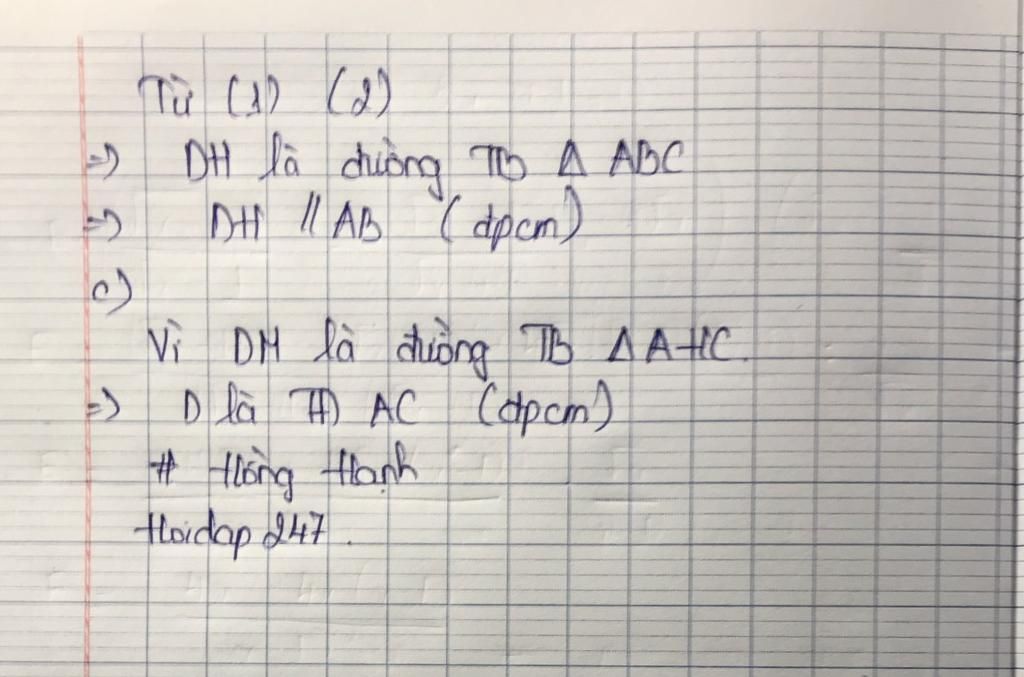 Từ (1) (2)
=) DH là đường TB Δ ABC
=) DH // AB (đpcm)
c)
Vì DH là đường TB Δ AHC.
=) D là TĐ AC (đpcm)
# Hồng Hạnh
Hoidap 247.